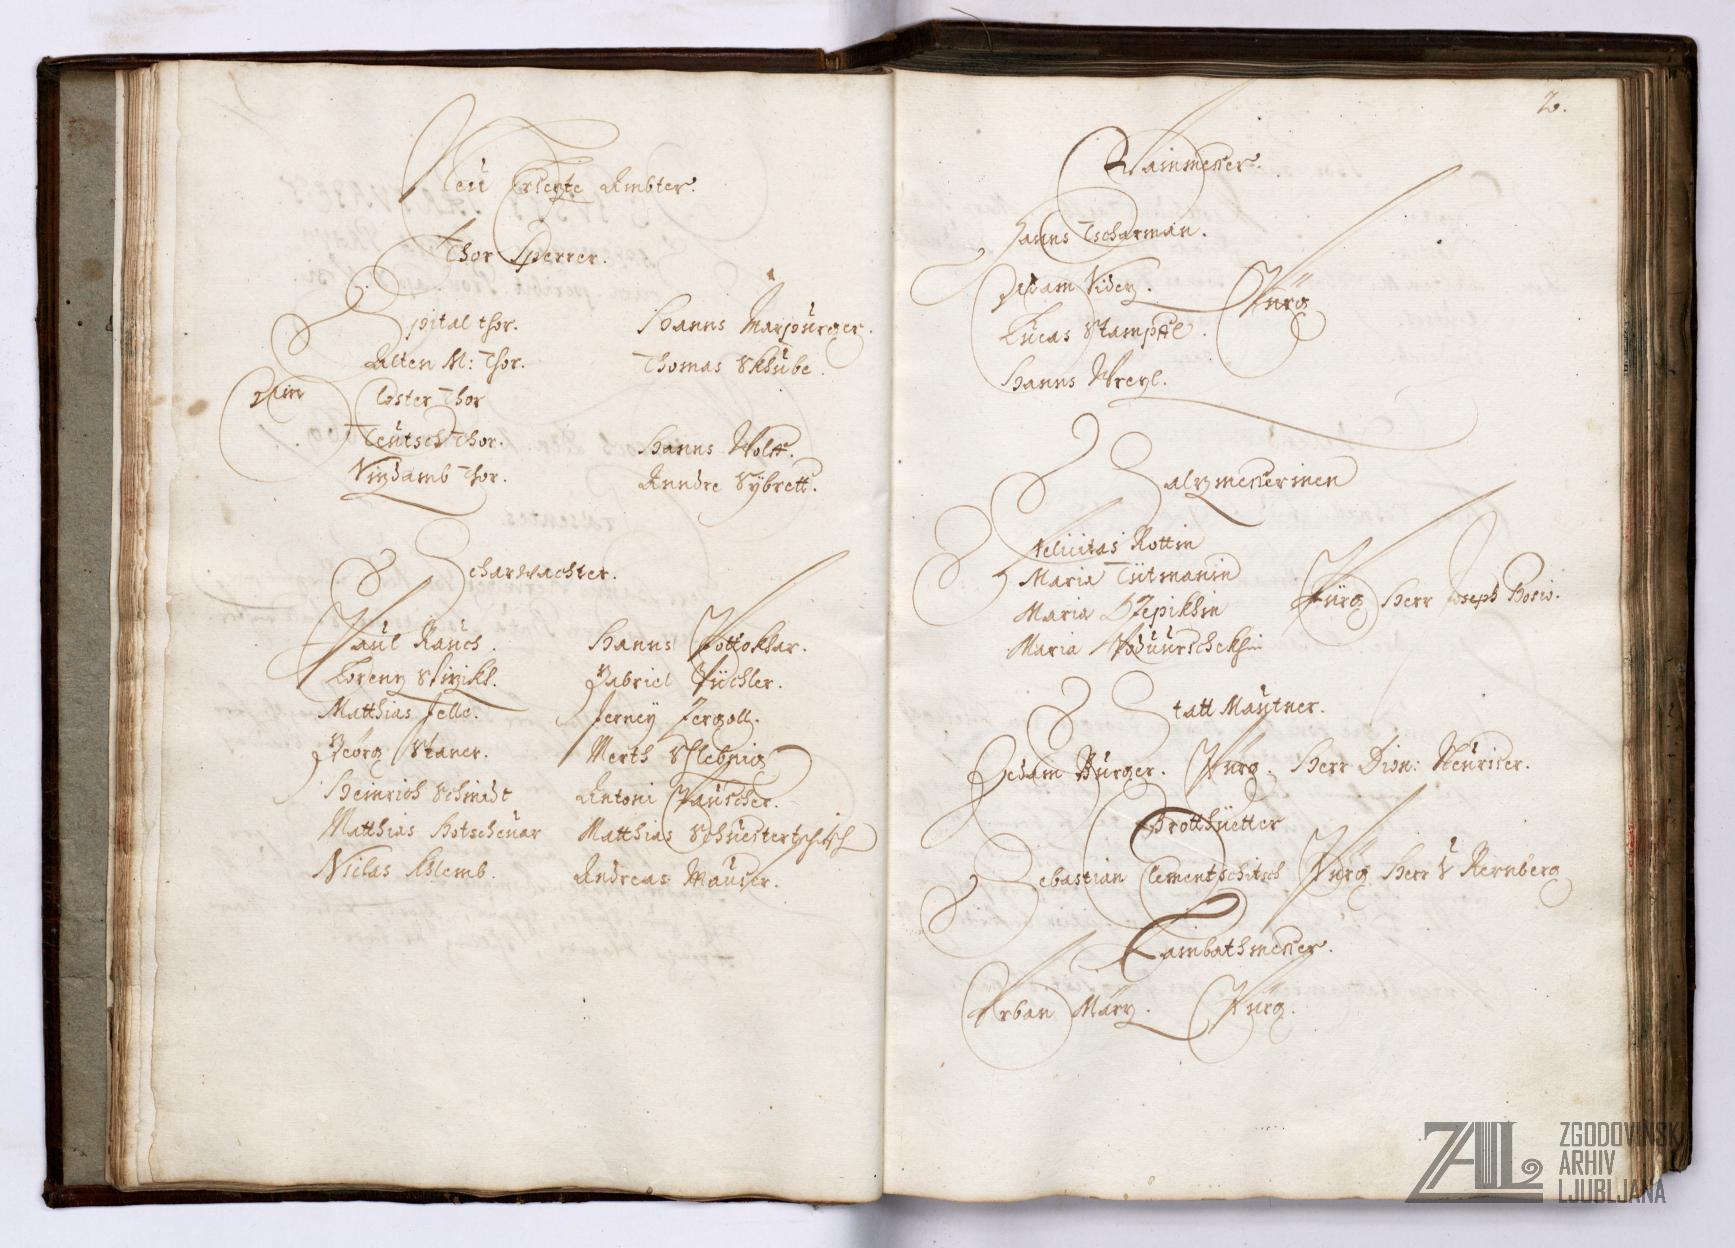 Neu Ersezte Ambter.
Thor Sperrer.
Spital thor. Hanns Marpurger.
Alten M: Thor. Thomas Skhube.
Closter Thor
Teutsch Thor. Hanns Wolff.
Vizdamb Thor. Anndre Sybrett.
Scharwachter.
Paul Rauch. Hanns Pottokhar.
Lorenz Strzikh. Gabriel Püchler.
Matthias Jelle. Jerney Zergoll.
Georg Staner. Merth Schlebnig
Heinrich Schmidt Antoni Pauscher.
Matthias Hotscheuar Matthias Schuestertschitsch
Niclas Khlemb. Andreas Mauser.
2.
Wainmesser.
Hanns Tscharman.
Adam Videz. Pürg
Lucas Stampfel.
Hanns Wreyl.
Salzmesserinen
Felicitas Rottin
Maria Tütmanin Pürg Herr Joseph Bosio.
Maria
Maria
Statt Mautner.
Adam Burger. Pürg. Herr Dion:
Brotthüetter
Sebastian Clementschitsch Pürg Herr V Kernberg
Lainbathmesser.
Urban März. Pürg.
ZAL ZGODOVINSKI
ARHIV
LJUBLJANA